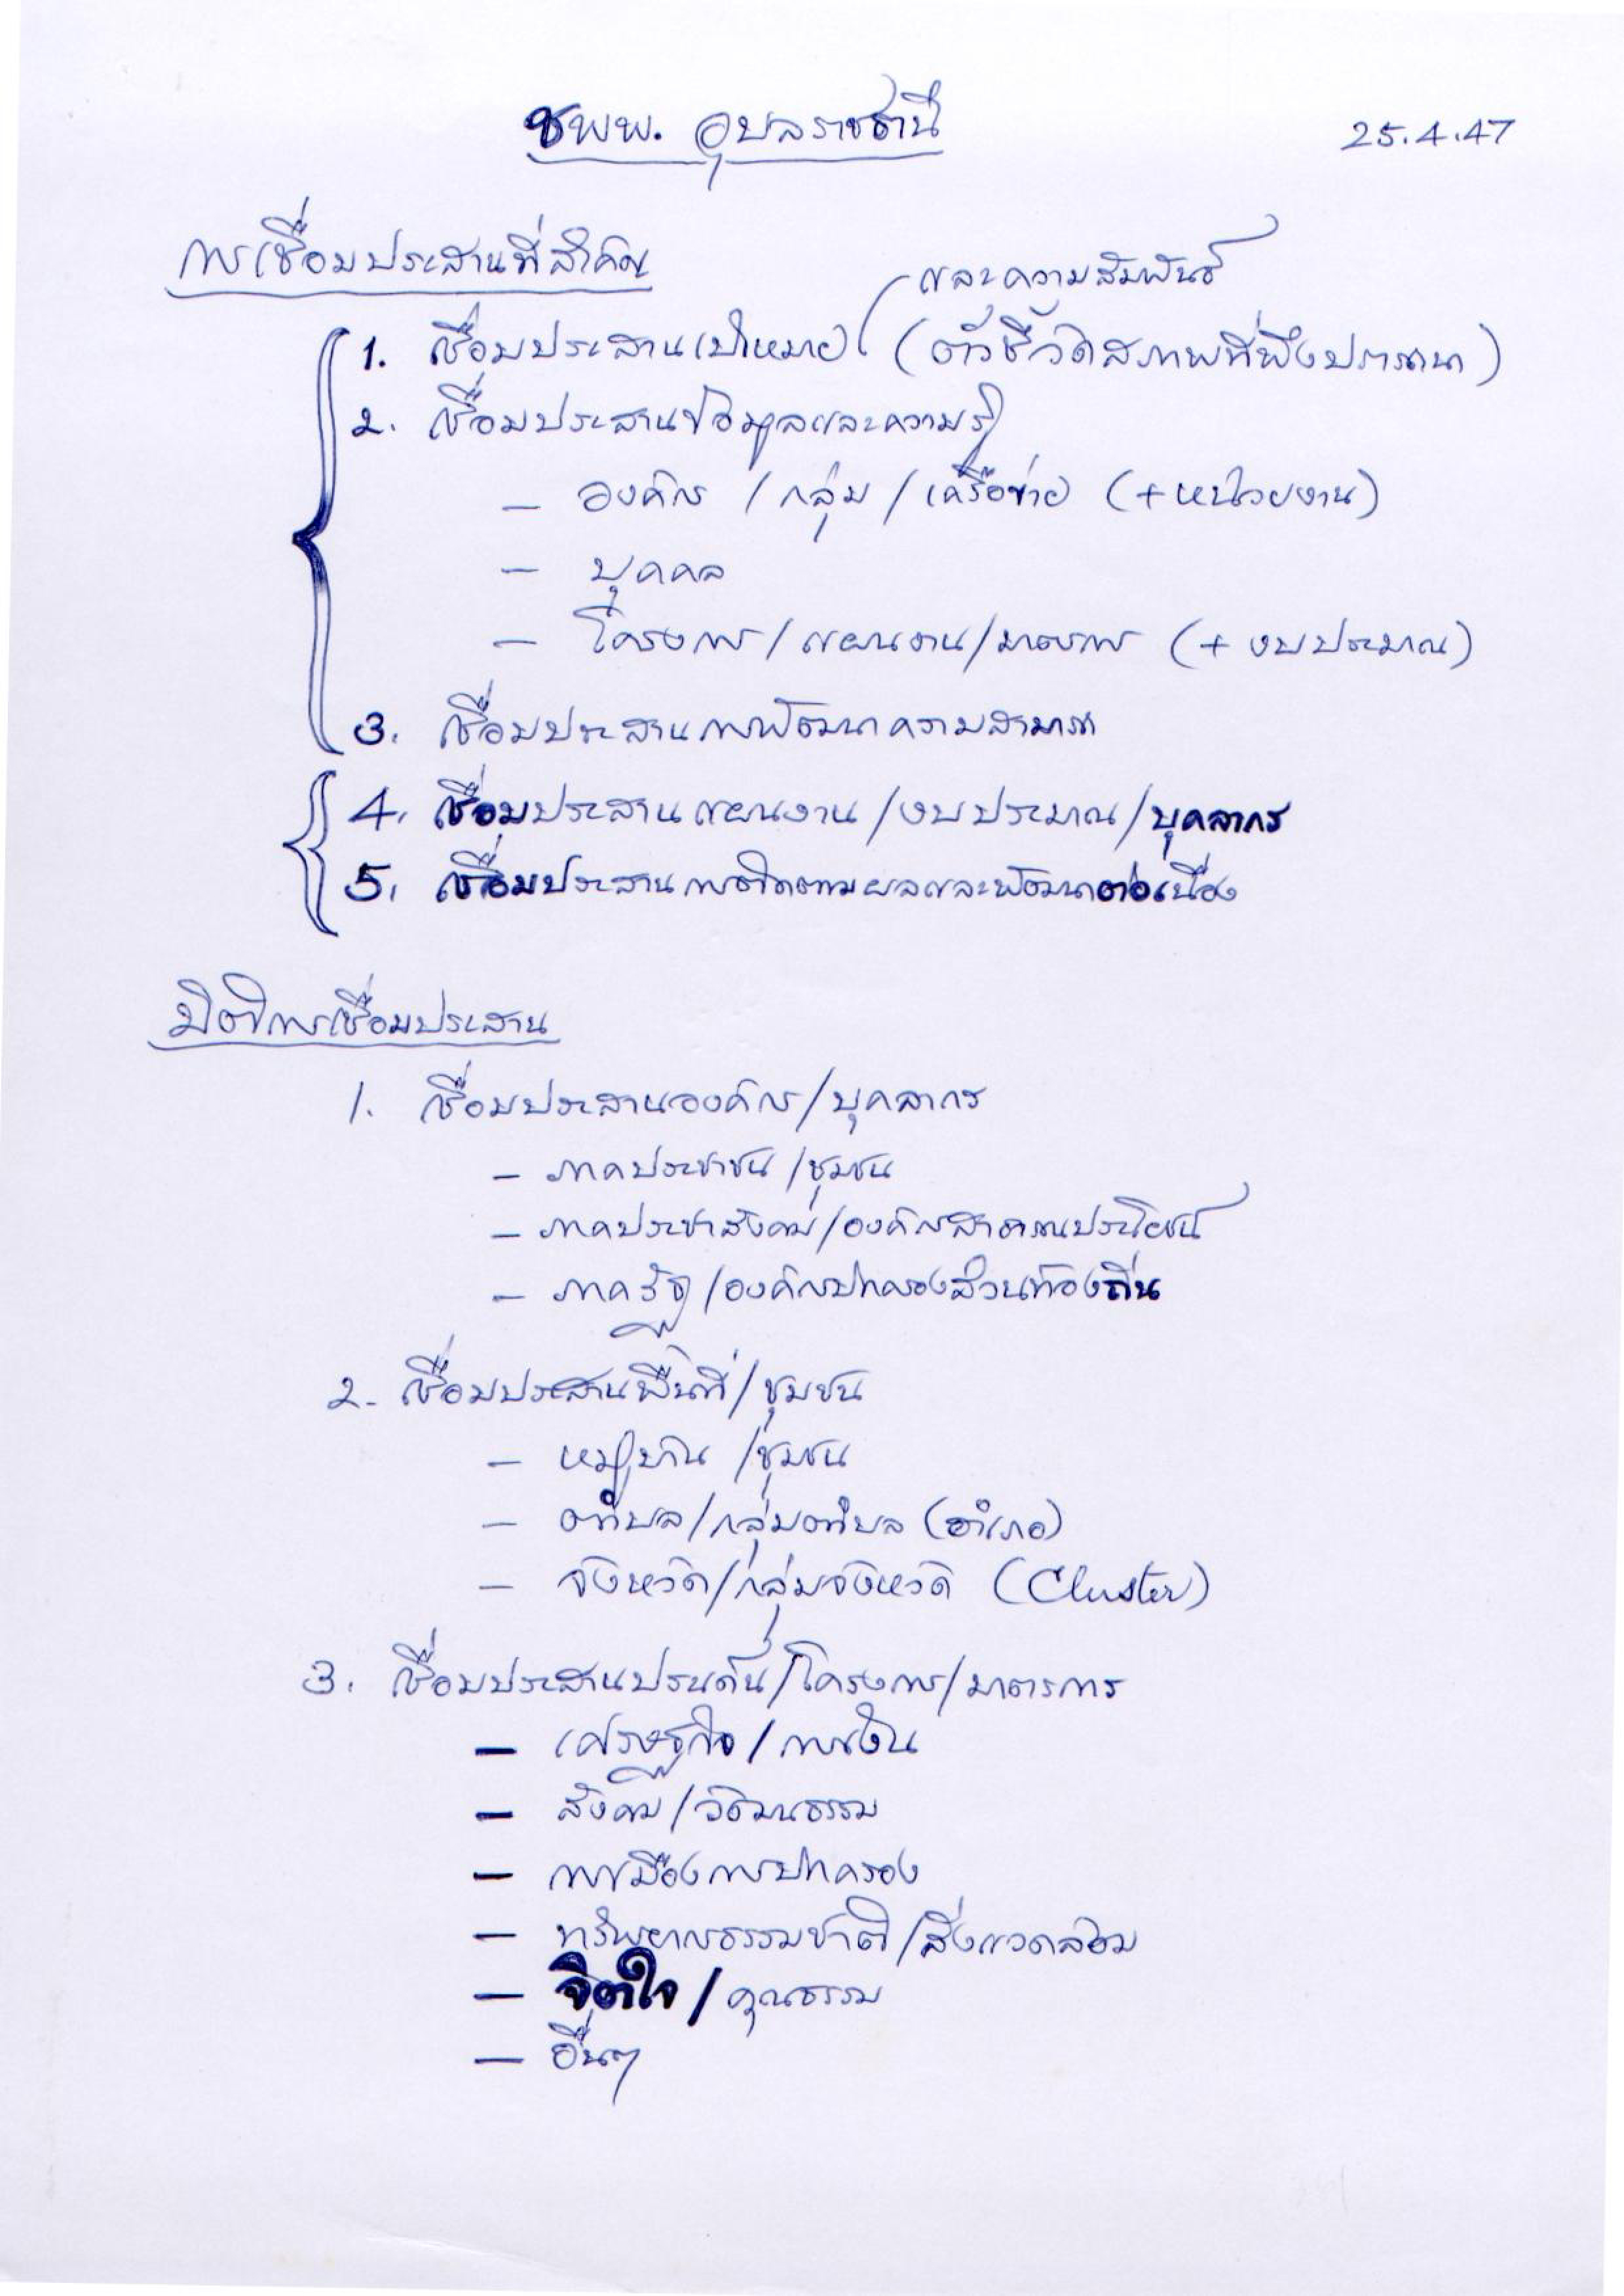 ชพพ. อุบลราชธานี
25.4.47
การเชื่อมประสานที่สำคัญ
และความสัมพันธ์
1. เชื่อมประสานเป้าหมาย (ตัวชี้วัดสภาพที่พึงปรารถนา)
2. เชื่อมประสานข้อมูลและความรู้
– องค์กร / กลุ่ม / เครือข่าย (+ หน่วยงาน)
– บุคคล
– โครงการ / แผนงาน / มาตรการ (+ งบประมาณ)
3. เชื่อมประสานการพัฒนาความสามารถ
4. เชื่อมประสานแผนงาน / งบประมาณ / บุคลากร
5. เชื่อมประสานการติดตามผลและพัฒนาต่อเนื่อง
มิติการเชื่อมประสาน
1. เชื่อมประสานองค์กร / บุคลากร
– ภาคประชาชน / ชุมชน
– ภาคประชาสังคม / องค์กรสาธารณประโยชน์
– ภาครัฐ / องค์กรปกครองส่วนท้องถิ่น
2. เชื่อมประสานพื้นที่ / ชุมชน
– หมู่บ้าน / ชุมชน
– ตำบล / กลุ่มตำบล (อำเภอ)
– จังหวัด / กลุ่มจังหวัด (Cluster)
3. เชื่อมประสานประเด็น / โครงการ / มาตรการ
– เศรษฐกิจ / การเงิน
– สังคม / วัฒนธรรม
– การเมืองการปกครอง
– ทรัพยากรธรรมชาติ / สิ่งแวดล้อม
– จิตใจ / คุณธรรม
– อื่นๆ